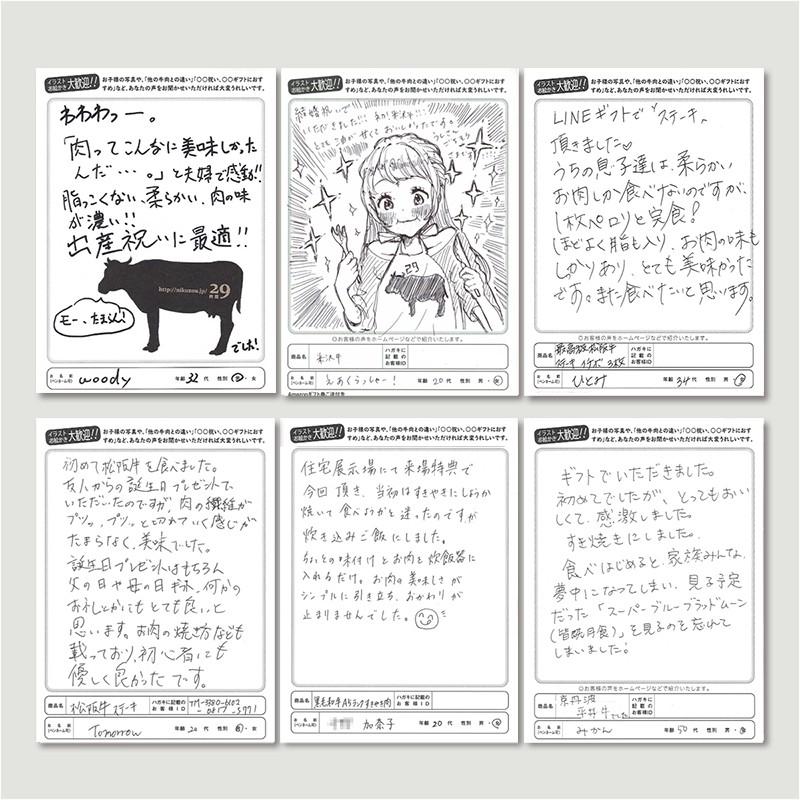 イラスト お絵かき 大歓迎!!
お子様の写真や、「他の牛肉との違い」「〇〇祝い、〇〇ギフトにおすすめ」など、あなたの声をお聞かせいただければ大変うれしいです。
わわわっー。
「肉ってこんなに美味しかった
んだ…。」と夫婦で感動!!
脂っこくない、柔らかい、肉の味
が濃い!!
出産祝いに最適!!
http://nikuzou.jp/ 29
モー、たまらん!
でしょ!
お名前(ペンネーム可) woody 年齢 32代 性別 男・女
イラスト お絵かき 大歓迎!!
お子様の写真や、「他の牛肉との違い」「〇〇祝い、〇〇ギフトにおすすめ」など、あなたの声をお聞かせいただければ大変うれしいです。
結婚祝いで
いただきました!!!
とても油が甘くておいしかったです
29
◎お客様の声をホームページなどで紹介いたします。
商品名 米沢牛 ハガキに記載のお客様ID
お名前(ペンネーム可) 年齢 20代 性別 男・女
イラスト お絵かき 大歓迎!!
お子様の写真や、「他の牛肉との違い」「〇〇祝い、〇〇ギフトにおすすめ」など、あなたの声をお聞かせいただければ大変うれしいです。
LINEギフトで"ステーキ"
頂きました♡
うちの息子達は、柔らかい
お肉しか食べないのですが、
1枚ペロリと完食!
ほどよく脂も入り、お肉の味も
しっかりあり、とても美味かった
です。また食べたいと思います。
◎お客様の声をホームページなどで紹介いたします。
商品名 最高級松阪牛 ステーキ イチボ 3枚 ハガキに記載のお客様ID
お名前(ペンネーム可) ひとみ 年齢 34代 性別 男・女
イラスト お絵かき 大歓迎!!
お子様の写真や、「他の牛肉との違い」「〇〇祝い、〇〇ギフトにおすすめ」など、あなたの声をお聞かせいただければ大変うれしいです。
初めて松阪牛を食べました。
友人からの誕生日プレゼントで
いただいたのですが、肉の繊維が
プツッ、プツッと切れていく感じが
たまらなく、美味でした。
誕生日プレゼントはもちろん
父の日や母の日ギフト、何かの
お礼とかにもとても良いと
思います。お肉の焼き方なども
載っており、初心者にも
優しく良かったです。
商品名 松阪牛ステーキ ハガキに記載のお客様ID
お名前(ペンネーム可) Tomorrow 年齢 20代 性別 男・女
イラスト お絵かき 大歓迎!!
お子様の写真や、「他の牛肉との違い」「〇〇祝い、〇〇ギフトにおすすめ」など、あなたの声をお聞かせいただければ大変うれしいです。
住宅展示場にて来場特典で
今回頂き、当初はすきやきにしようか
焼いて食べようかと迷ったのですが
炊き込みご飯にしました。
ちょっとの味付けとお肉を炊飯器に
入れるだけ。お肉の美味しさが
シンプルに引き立ち、おかわりが
止まりませんでした。
商品名 黒毛和牛A5ランクすきやき肉 ハガキに記載のお客様ID
お名前(ペンネーム可) 加奈子 年齢 20代 性別 男・女
イラスト お絵かき 大歓迎!!
お子様の写真や、「他の牛肉との違い」「〇〇祝い、〇〇ギフトにおすすめ」など、あなたの声をお聞かせいただければ大変うれしいです。
ギフトでいただきました。
初めてでしたが、とってもおい
しくて、感激しました。
すき焼きにしました。
食べはじめると、家族みんな、
夢中になってしまい、見る予定
だった「スーパーブルーブラッドムーン
(皆既月食)」を見るのを忘れて
しまいました!
◎お客様の声をホームページなどで紹介いたします。
商品名 京丹波 平井牛でした ハガキに記載のお客様ID
お名前(ペンネーム可) みかん 年齢 50代 性別 男・女